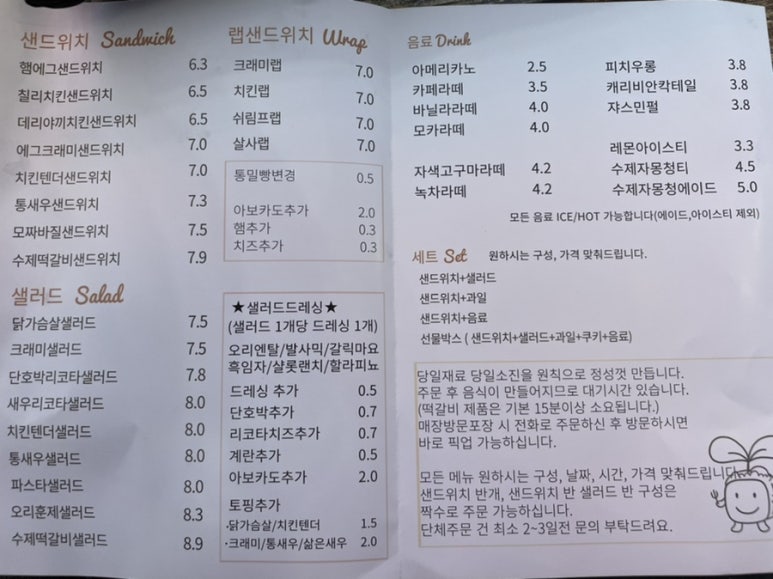 샌드위치 Sandwich
햄에그샌드위치 6.3
칠리치킨샌드위치 6.5
데리야끼치킨샌드위치 6.5
에그크래미샌드위치 7.0
치킨텐더샌드위치 7.0
통새우샌드위치 7.3
모짜바질샌드위치 7.5
수제떡갈비샌드위치 7.9
샐러드 Salad
닭가슴살샐러드 7.5
크래미샐러드 7.5
단호박리코타샐러드 7.8
새우리코타샐러드 8.0
치킨텐더샐러드 8.0
통새우샐러드 8.0
파스타샐러드 8.0
오리훈제샐러드 8.3
수제떡갈비샐러드 8.9
랩샌드위치 Wrap
크래미랩 7.0
치킨랩 7.0
쉬림프랩 7.0
살사랩 7.0
통밀빵변경 0.5
아보카도추가 2.0
햄추가 0.3
치즈추가 0.3
★샐러드드레싱★
(샐러드 1개당 드레싱 1개)
오리엔탈/발사믹/갈릭마요
흑임자/샬롯랜치/할라피뇨
드레싱 추가 0.5
단호박추가 0.7
리코타치즈추가 0.7
계란추가 0.5
아보카도추가 2.0
토핑추가
·닭가슴살/치킨텐더 1.5
·크래미/통새우/삶은새우 2.0
음료 Drink
아메리카노 2.5
카페라떼 3.5
바닐라라떼 4.0
모카라떼 4.0
자색고구마라떼 4.2
녹차라떼 4.2
피치우롱 3.8
캐리비안칵테일 3.8
쟈스민펄 3.8
레몬아이스티 3.3
수제자몽청티 4.5
수제자몽청에이드 5.0
모든 음료 ICE/HOT 가능합니다(에이드,아이스티 제외)
세트 Set 원하시는 구성, 가격 맞춰드립니다.
샌드위치+샐러드
샌드위치+과일
샌드위치+음료
선물박스 ( 샌드위치+샐러드+과일+쿠키+음료)
당일재료 당일소진을 원칙으로 정성껏 만듭니다.
주문 후 음식이 만들어지므로 대기시간 있습니다.
(떡갈비 제품은 기본 15분이상 소요됩니다.)
매장방문포장 시 전화로 주문하신 후 방문하시면
바로 픽업 가능하십니다.
모든 메뉴 원하시는 구성, 날짜, 시간, 가격 맞춰드립니다.
샌드위치 반개, 샌드위치 반 샐러드 반 구성은
짝수로 주문 가능하십니다.
단체주문 건 최소 2~3일전 문의 부탁드려요.